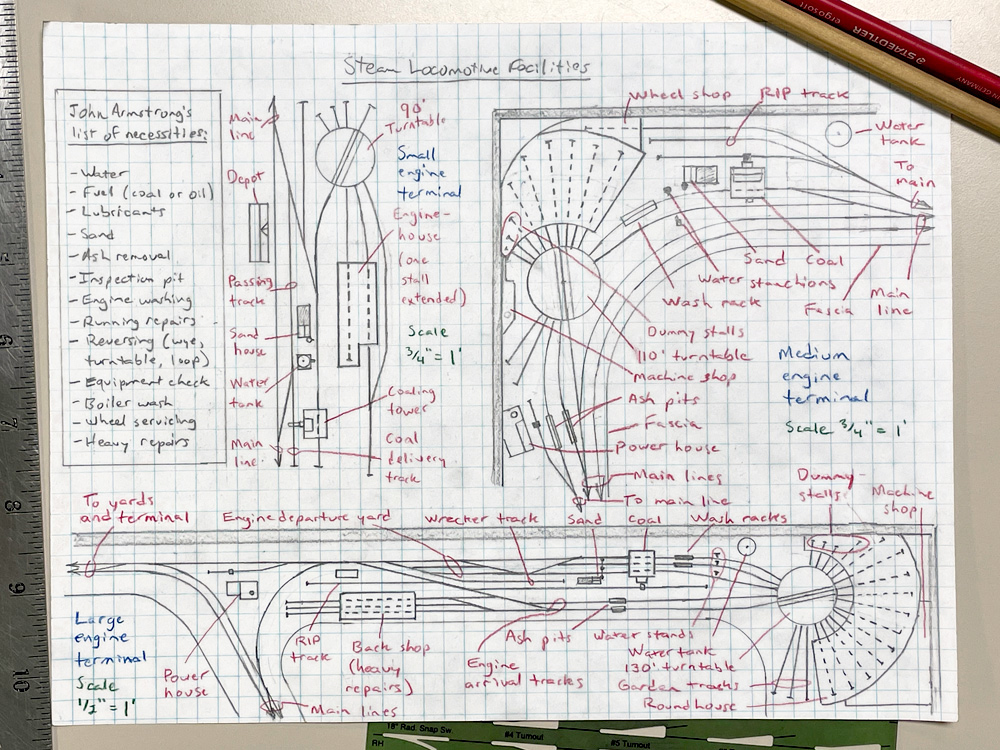 STAEDTLER
ergosoft
GERMANY
Steam Locomotive Facilities
John Armstrong's
list of necessities:
- Water
- Fuel (coal or oil)
- Lubricants
- Sand
- Ash removal
- Inspection pit
- Engine washing
- Running repairs
- Reversing (wye,
turntable, loop)
- Equipment check
- Boiler wash
- Wheel servicing
- Heavy repairs
Main
line
Depot
Passing
track
Sand
house
Water
tank
Main
line
90'
Turntable
Small
engine
terminal
Engine-
house
(one
stall
extended)
Scale
3/4" = 1'
Coaling
tower
Coal
delivery
track
Wheel shop
RIP track
Water
tank
To
main
Sand
Coal
Water stanchions
Wash rack
Fascia
Main
line
Dummy stalls
110' turntable
Machine shop
Medium
engine
terminal
Scale 3/4" = 1'
Ash pits
Fascia
Power house
Main lines
To main line
To yards
and terminal
Engine departure yard
Wrecker track
Sand
Coal
Wash racks
Dummy
stalls
Machine
shop
Large
engine
terminal
Scale
1/2" = 1'
Power
house
RIP
track
Back shop
(heavy
repairs)
Main lines
Ash pits
Engine
arrival tracks
Water stands
Water tank
130' turntable
Garden tracks
Roundhouse
18" Rad. Snap Sw
#4 Turnout
#5 Turnout
RH
8
9
10